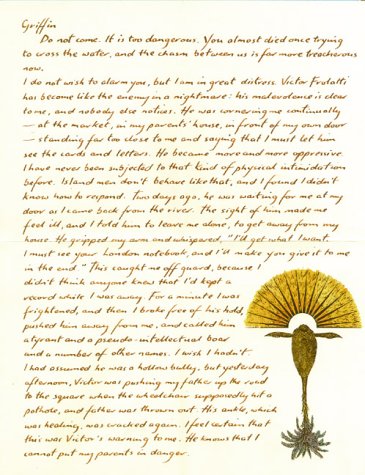 Griffin
Do not come. It is too dangerous. You almost died once trying
to cross the water, and the chasm between us is far more treacherous
now.
I do not wish to alarm you, but I am in great distress. Victor Frolatti
has become like the enemy in a nightmare: his malevolence is clear
to me, and nobody else notices. He was cornering me continually
— at the market, in my parents' house, in front of my own door
— standing far too close to me and saying that I must let him
see the cards and letters. He became more and more oppressive.
I have never been subjected to that kind of physical intimidation
before. Island men don't behave like that, and I found I didn't
know how to respond. Two days ago, he was waiting for me at my
door as I came back from the river. The sight of him made me
feel ill, and I told him to leave me alone, to get away from my
house. He gripped my arm and whispered, "I'll get what I want.
I must see your London notebook, and I'll make you give it to me
in the end." This caught me off guard, because I
didn't think anyone knew that I'd kept a
record while I was away. For a minute I was
frightened, and then I broke free of his hold,
pushed him away from me, and called him
a tyrant and a pseudo-intellectual boar
and a number of other names. I wish I hadn't.
I had assumed he was a hollow bully, but yesterday
afternoon, Victor was pushing my father up the road
to the square when the wheelchair supposedly hit a
pothole, and father was thrown out. His ankle, which
was healing, was cracked again. I feel certain that
this was Victor's warning to me. He knows that I
cannot put my parents in danger.